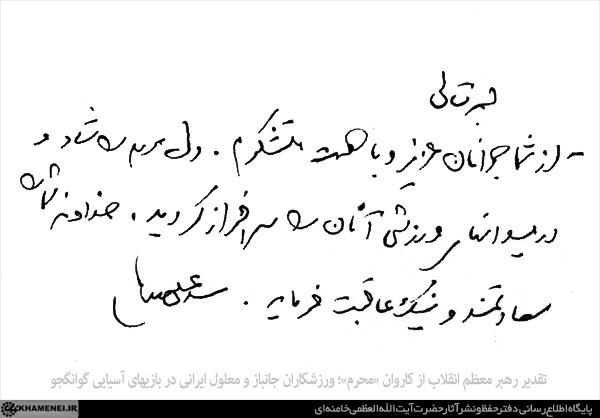 بسمه‌تعالی
- از شما جوانان عزیز و با همت متشکرم. دل مردم را شاد و
در میدانهای ورزشی آنان را سرافراز کردید. خداوند شما را
سعادتمند و نیک‌عاقبت فرماید. سیدعلی خامنه‌ای
تقدیر رهبر معظم انقلاب از کاروان «محرم»؛ ورزشکاران جانباز و معلول ایرانی در بازیهای آسیایی گوانگجو
KHAMENEI.IR
پایگاه اطلاع رسانی دفتر حفظ و نشر آثار حضرت آیت الله العظمی خامنه‌ای